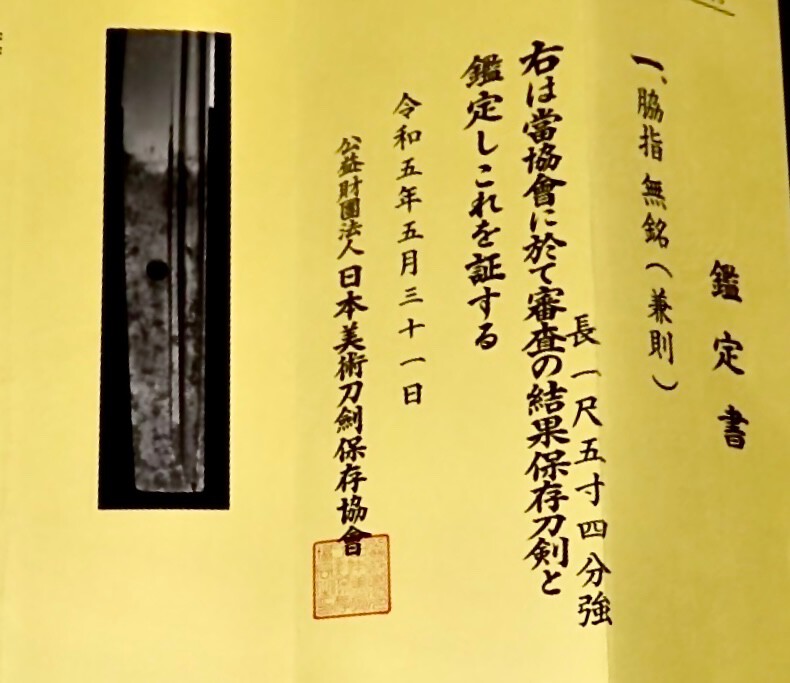 鑑定書
一、脇指 無銘(兼則)
長 一尺五寸四分強
右は當協會に於て審査の結果保存刀剣と
鑑定しこれを証する
令和五年五月三十一日
公益財團法人日本美術刀劍保存協會